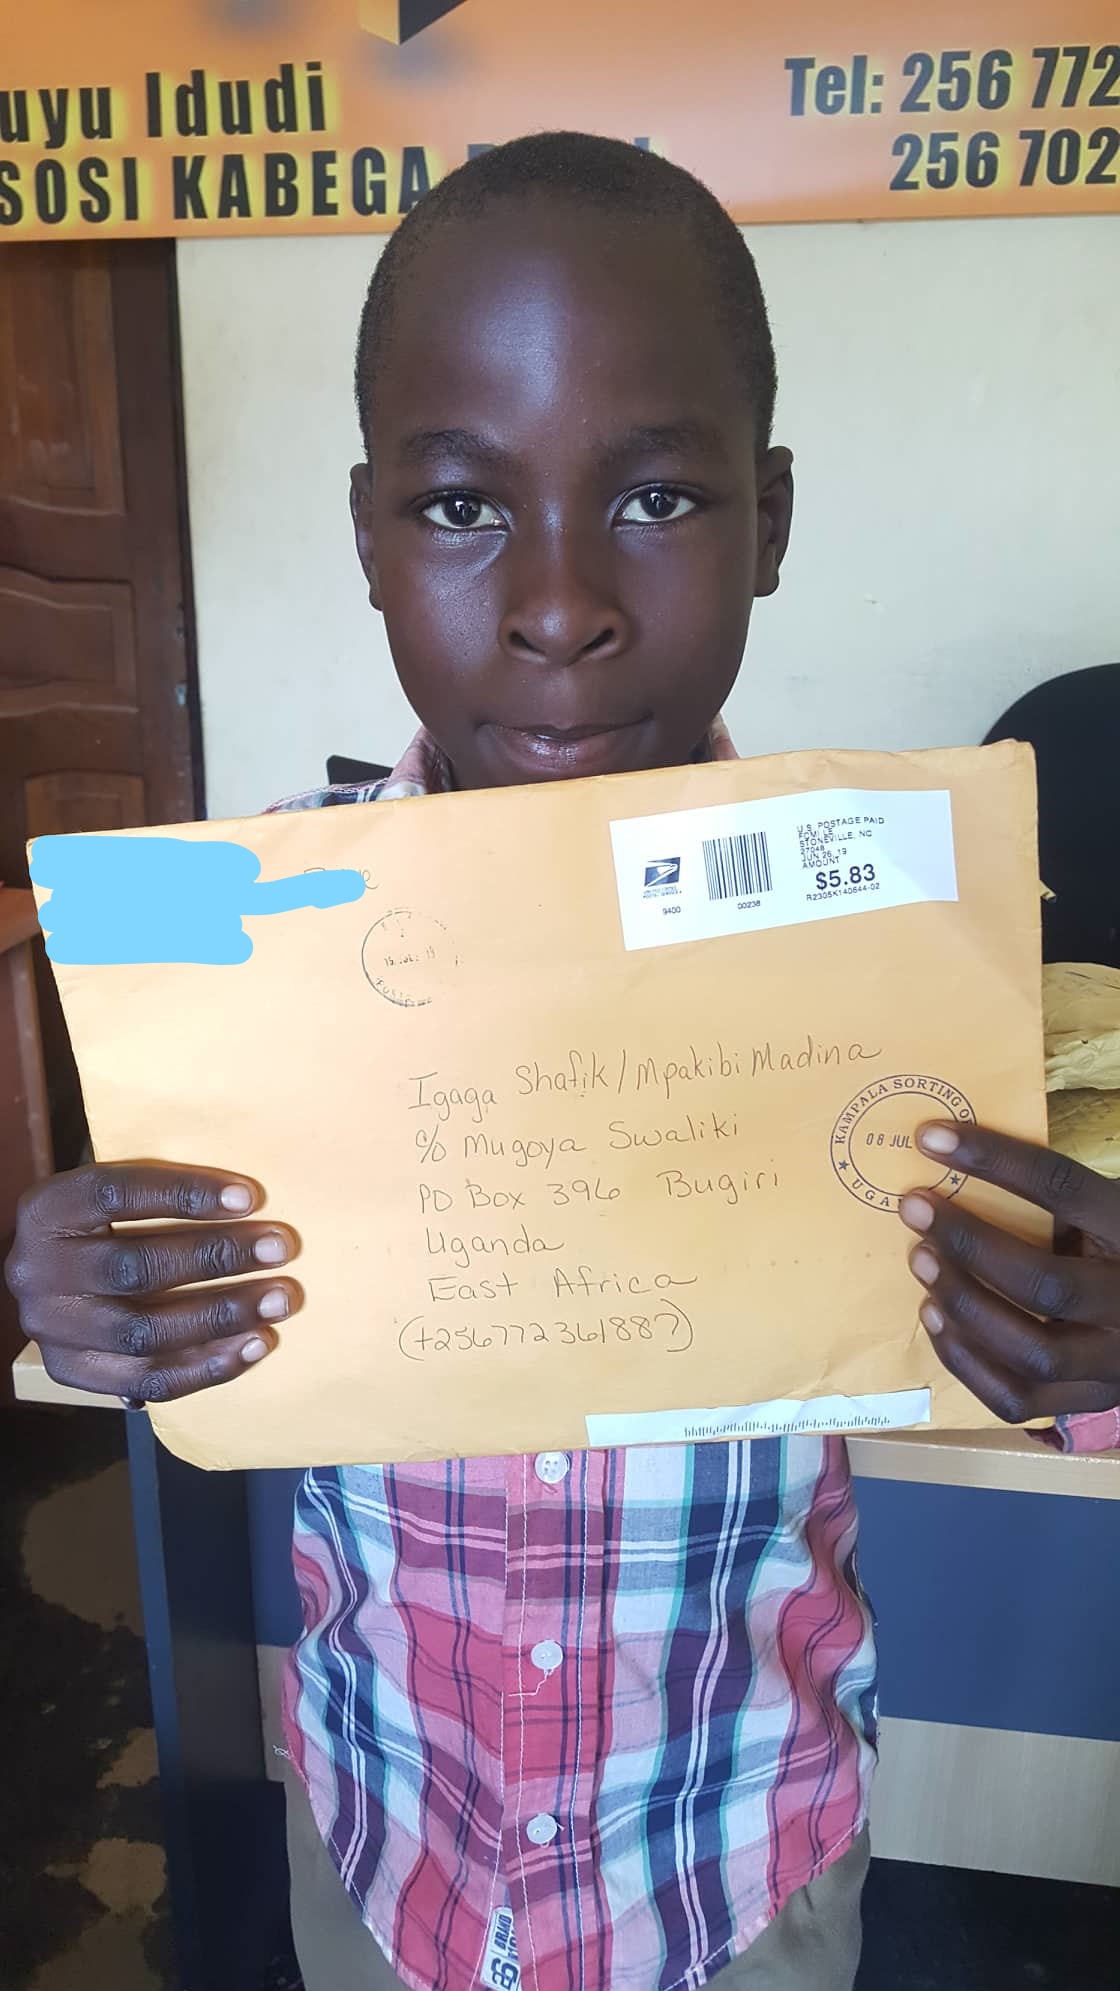 uyu Idudi
SOSI KABEGA
Tel: 256 772
256 702
U.S. POSTAGE PAID
FCMI LE
STONEVILLE, NC
27048
JUN 26, 19
AMOUNT
$5.83
R2305K140644-02
UNITED STATES
POSTAL SERVICE
9400
00238
15 JUL 19
Igaga Shafik/Mpakibi Madina
c/o Mugoya Swaliki
PO Box 396 Bugiri
Uganda
East Africa
(+256772361887)
KAMPALA SORTING
08 JUL
UGA
BRAND